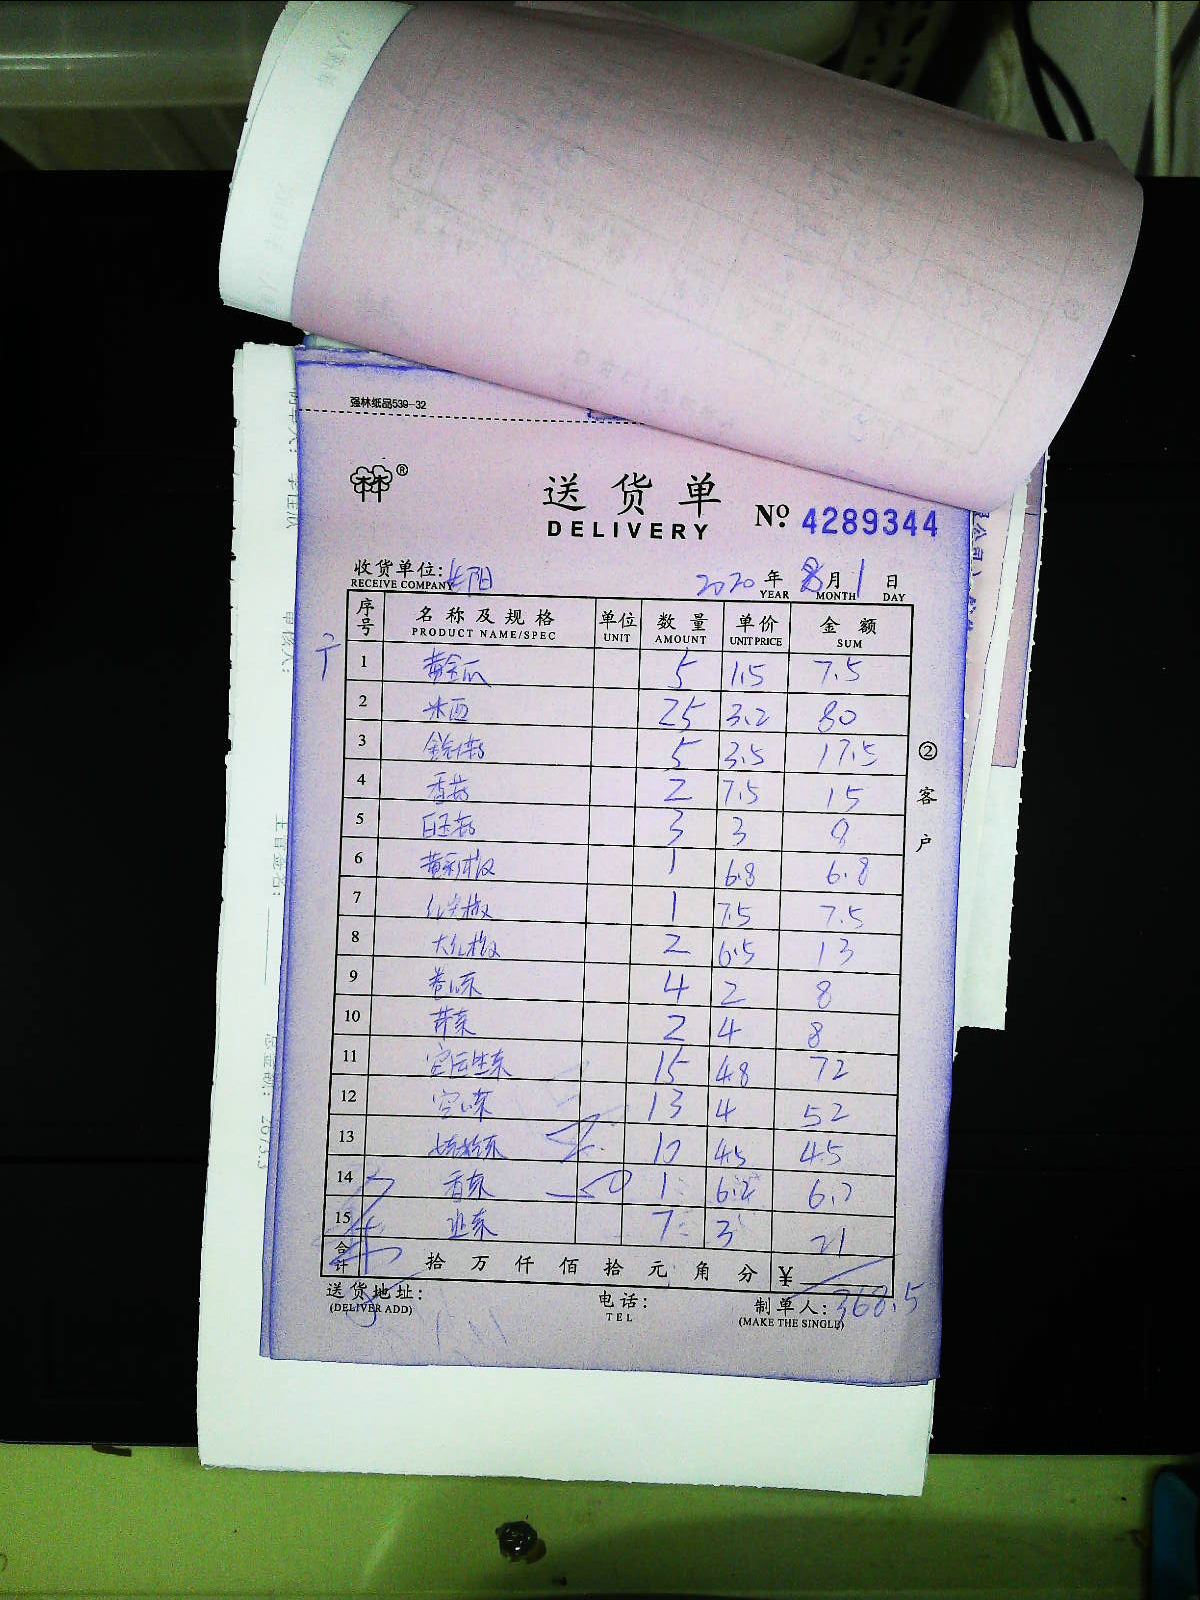 强林纸品539-32
林林®
送货单
DELIVERY
Nº 4289344
收货单位: 长阳
RECEIVE COMPANY
2020 年 8 月 1 日
YEAR MONTH DAY
序号 名称及规格 单位 数量 单价 金额
PRODUCT NAME/SPEC UNIT AMOUNT UNIT PRICE SUM
1 黄金瓜 5 1.5 7.5
2 25 3.2 80
3 5 3.5 17.5
4 香菇 2 7.5 15
5 白玉菇 3 3 9
6 黄彩椒 1 6.8 6.8
7 红尖椒 1 7.5 7.5
8 大红椒 2 6.5 13
9 卷心菜 4 2 8
10 芽菜 2 4 8
11 生菜 15 4.8 72
12 空心菜 13 4 52
13 10 4.5 45
14 香菜 1 6.2 6.2
15 韭菜 7 3 21
合计 拾 万 仟 佰 拾 元 角 分 ¥
368.5
送货地址: 电话: 制单人:
(DELIVER ADD) TEL (MAKE THE SINGLE)
②客户
审核人:
2673.3